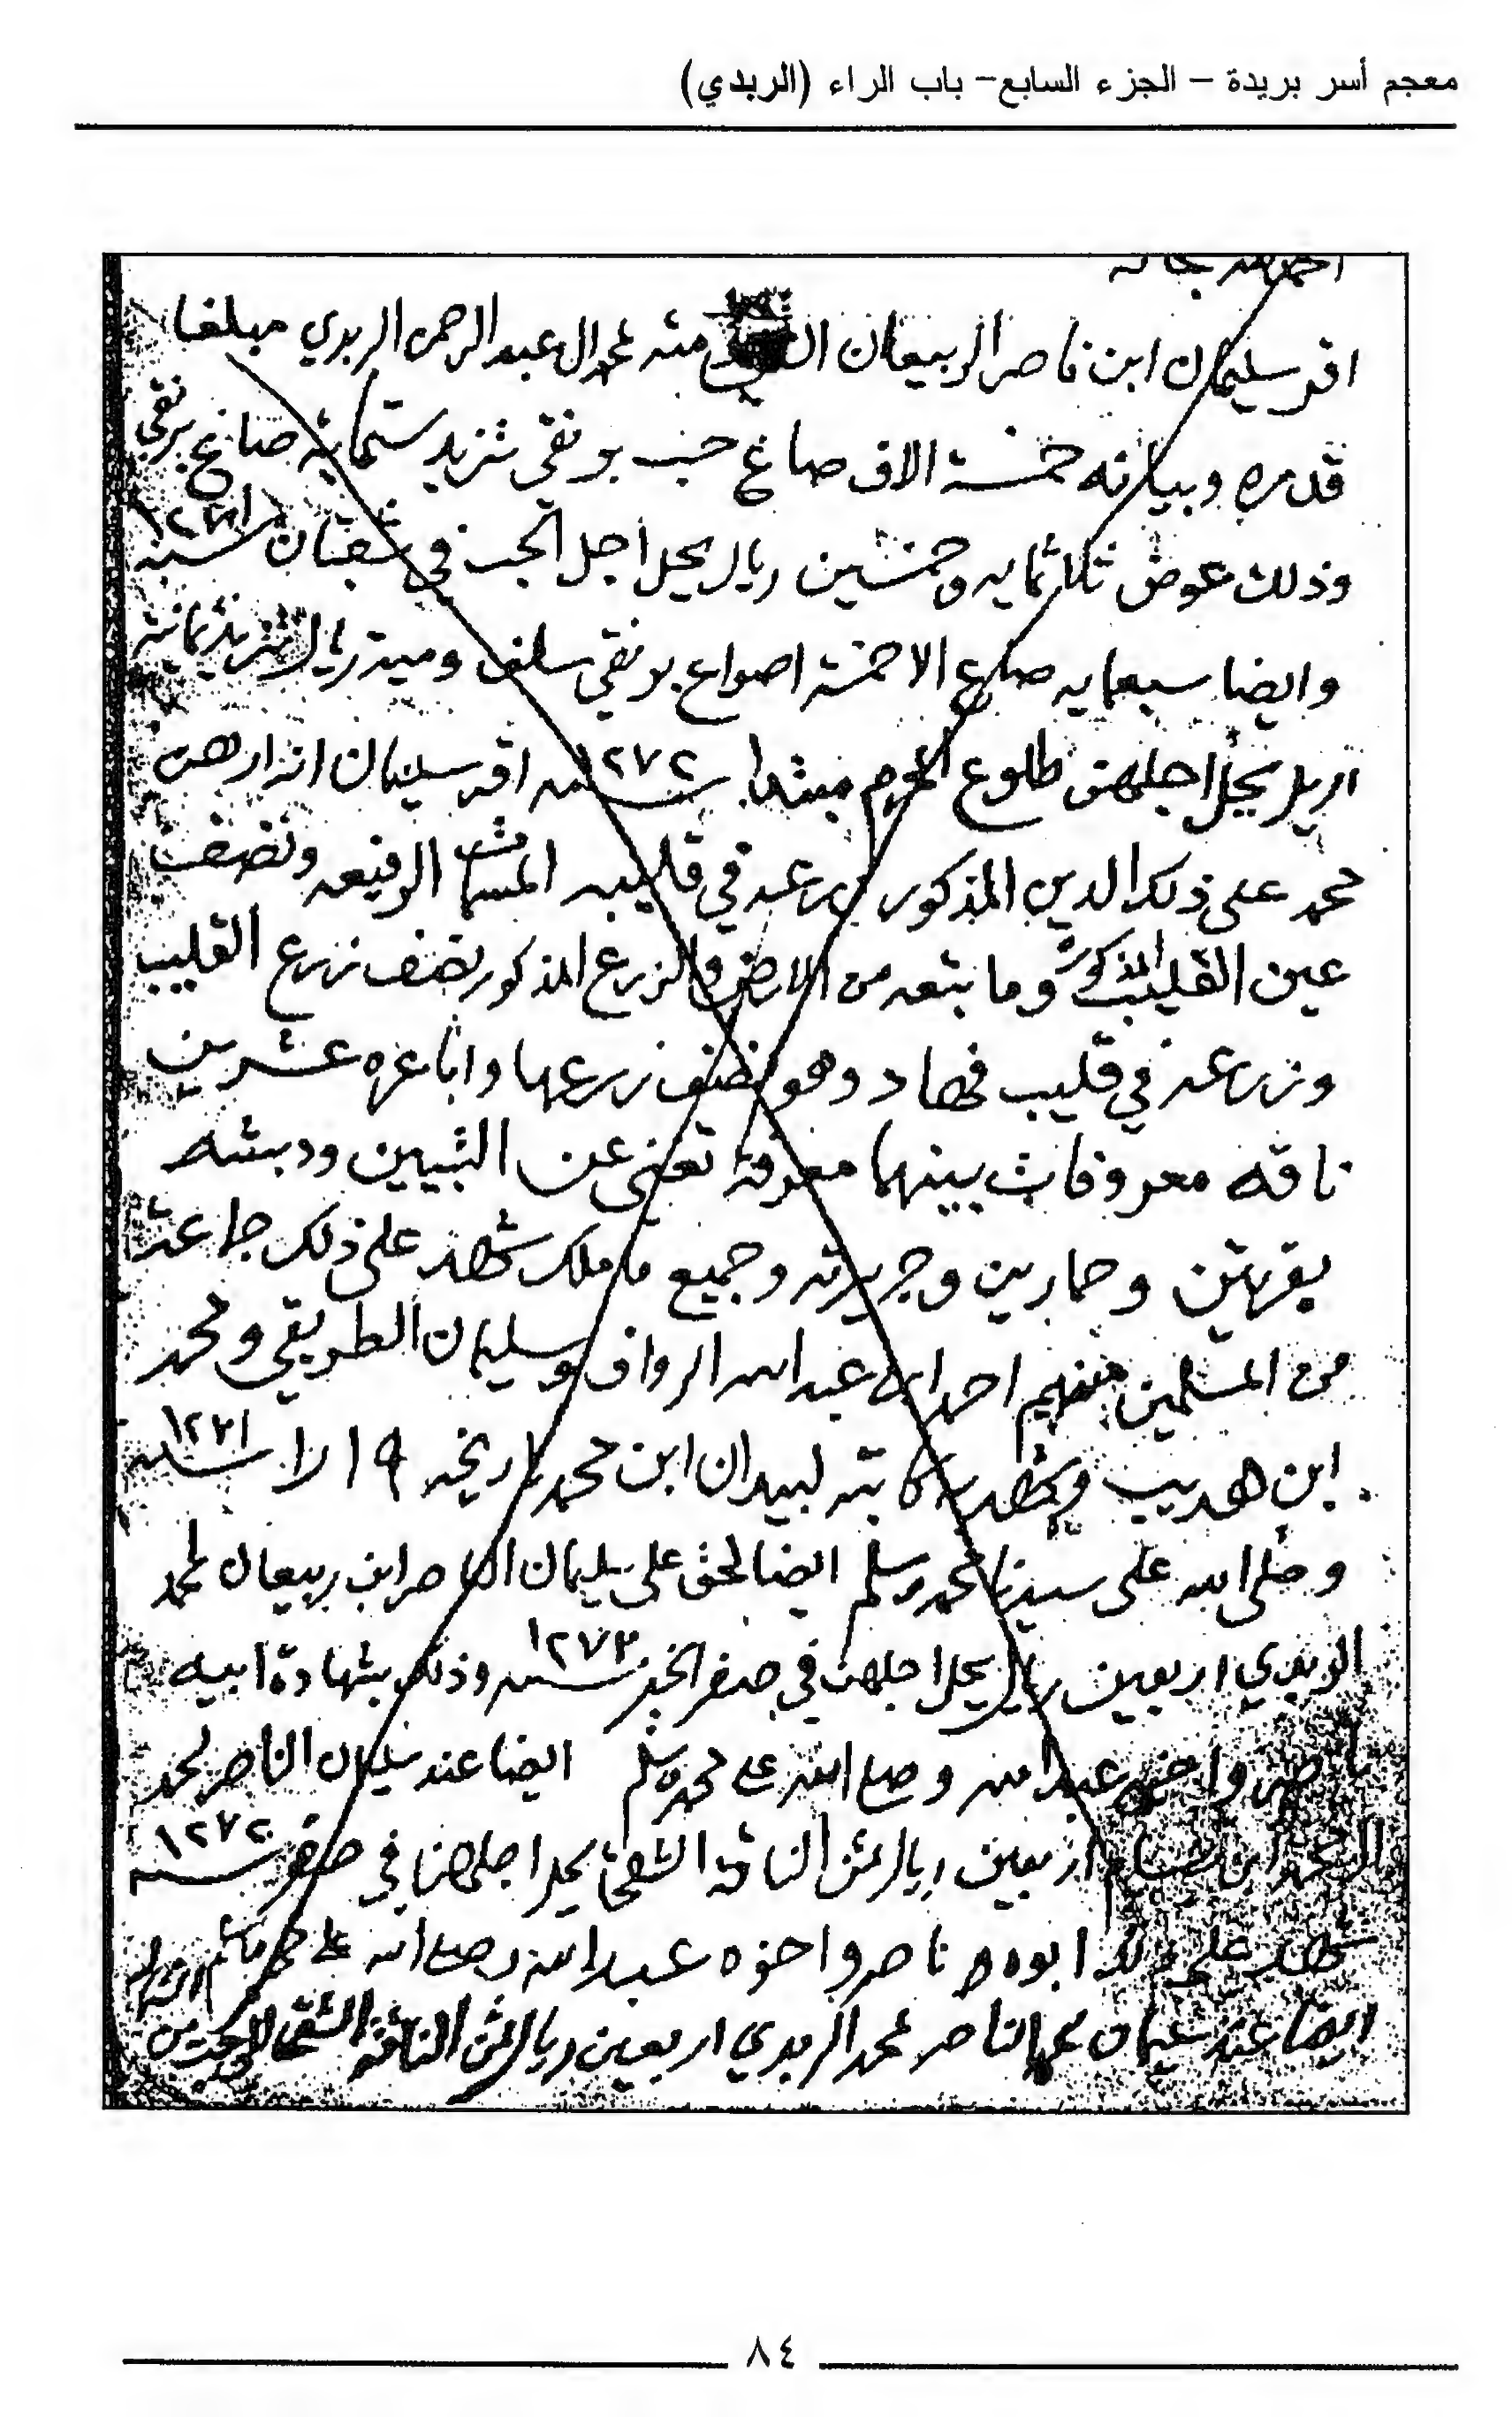 معجم أسر بريدة – الجزء السابع– باب الراء (الربدي)
اقر سليمان ابن ناصر الربيعان منه لمحمدال عبدالرحمن الربدي مبلغا
قدره وبيانه خمسة الاف صاع حب بر نقي تزيد ستمائة صاع بر نقي
وذلك عوض ثلاثمايه وخمسين ريال يحل اجل الحب في شعبان سنة ١٢٧١
وايضا سبعمايه صاع الا خمسة اصواع بر نقي سلف ومية ريال تزيد ثمانية
اريل يحل اجلهن طلوع المحرم مبتدا سنة ١٢٧٢ اقر سليمان انه ارهن
محمد على ذلك الدين المذكور زرعه في قليبه الرفيعه ونصف
عين القليب المذكوره وما يتبعه من الارض والزرع المذكور نصف زرع القليب
وزرعه في قليب فهاد وهو نصف زرعها واباعره عشرين
ناقه معروفات بينهما معرفة تغني عن التبيين ودبشه
بقرتين وحمارين وجريرته وجميع ما ملك شهد على ذلك جماعة
من المسلمين منهم احمد ابن عبدالله الرواف وسليمان الطويقي ومحمد
ابن هديب وشهد به كاتبه لبيدان ابن محمد تاريخه ١٩ را سنة ١٢٧١
وصلى الله على سيدنا محمد وسلم ايضا لحق على سليمان الناصر ابن ربيعان لمحمد
الربدي اربعين ريال يحل اجلهن في صفر الخير سنة ١٢٧٣ وذلك بشهادة ابيه
ناصر واخيه عبدالله وصلى الله على محمد وسلم ايضا عند سليمان الناصر لمحمد
اربعين ريال ثمن الناقة الشقحى يحل اجلهن في صفر سنة ١٢٧٢
شهد على ذلك ابوه ناصر واخوه عبدالله وصلى الله على محمد وسلم
ايضا عند سليمان الناصر لمحمد الربدي اربعين ريال ثمن الناقة الشقحا
٨٤